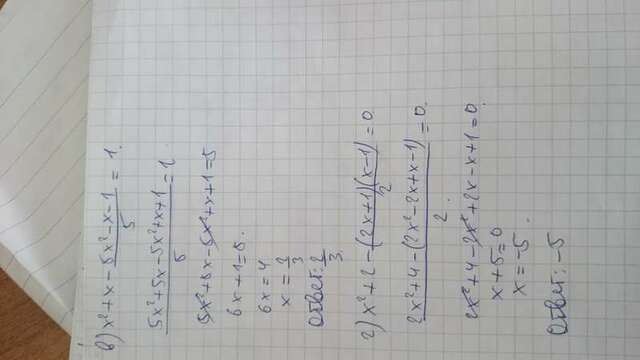 в) x²+x - (5x²-x-1)/5 = 1.
(5x²+5x-5x²+x+1)/5 = 1
5x²+5x-5x²+x+1=5
6x+1=5.
6x=4
x=2/3
Ответ: 2/3.
г) x²+2 - ((2x+1)(x-1))/2 = 0
(2x²+4-(2x²-2x+x-1))/2 = 0.
2x²+4-2x²+2x-x+1=0.
x+5=0
x=-5.
Ответ: -5